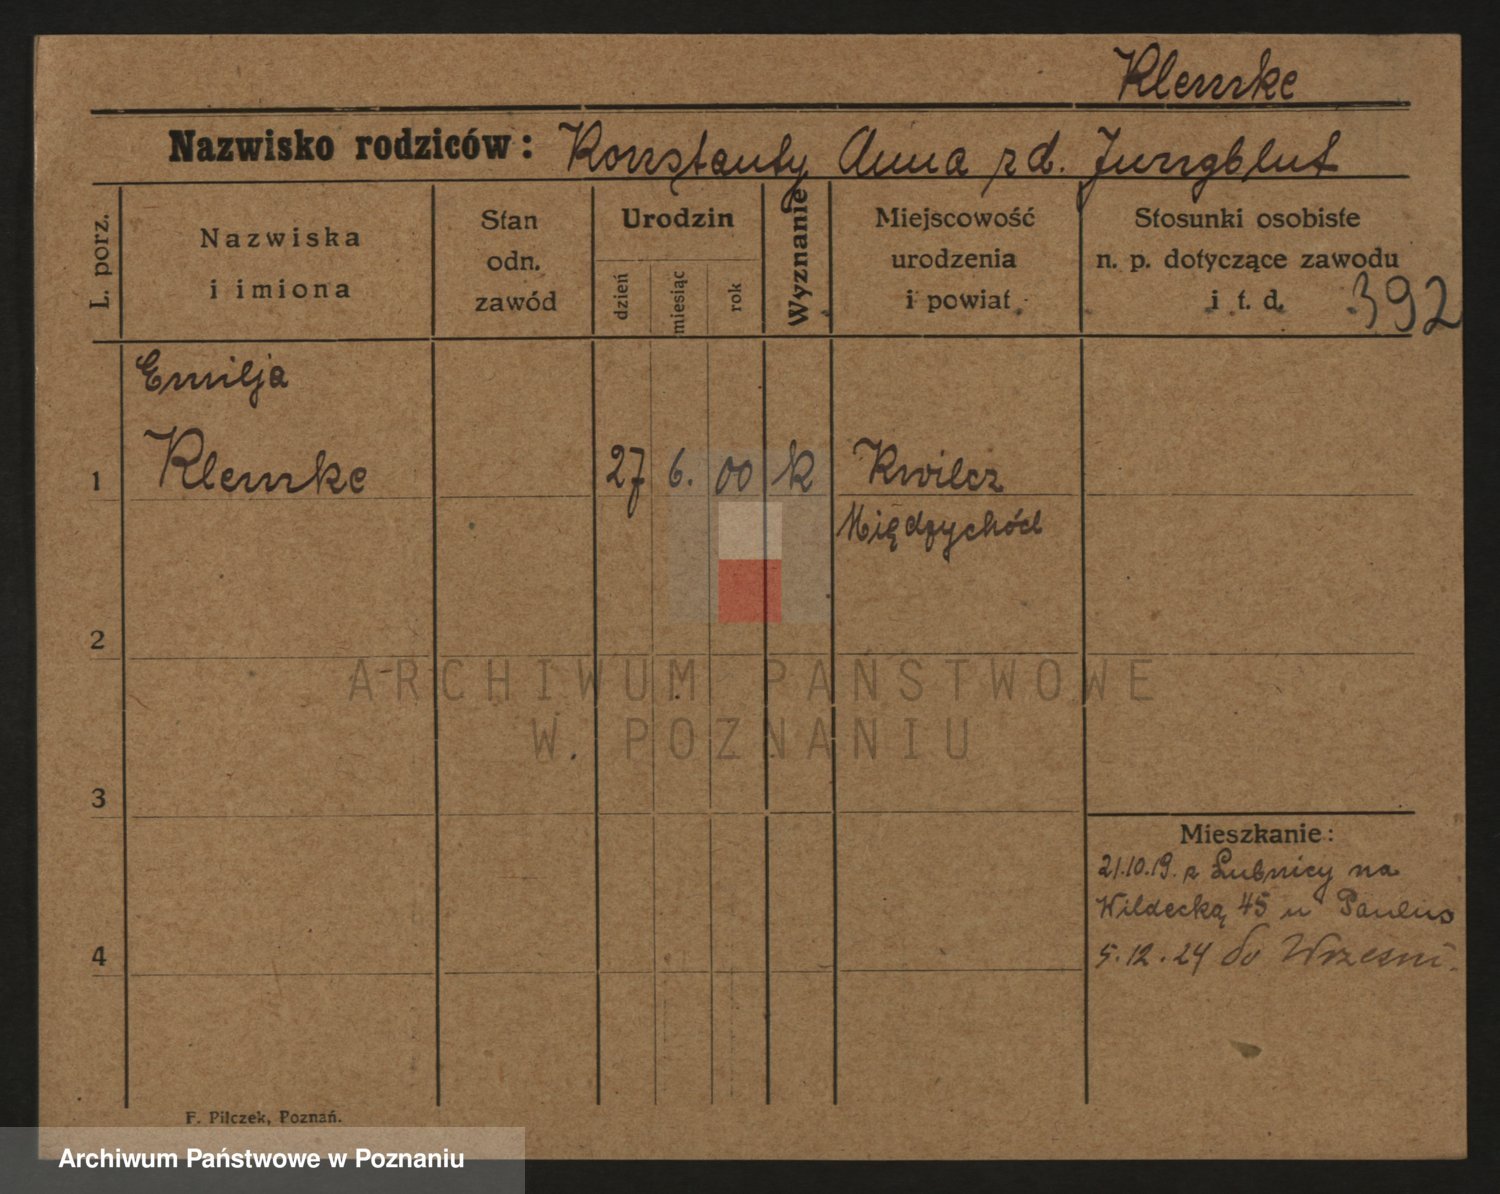 Klemke
Nazwisko rodziców: Konstanty Anna zd. Jungblut
L. porz.
Nazwiska
i imiona
Stan
odn.
zawód
Urodzin
dzień
miesiąc
rok
Wyznanie
Miejscowość
urodzenia
i powiat
Stosunki osobiste
n. p. dotyczące zawodu
i t. d.
392
Emilja
1 Klemke 27 6. 00 k Kwilcz
Międzychód
2
ARCHIWUM PAŃSTWOWE
W POZNANIU
3
Mieszkanie:
21.10.19. z Lubnicy na
Wildecką 45 u Paulus
4
5.12.24 do Wrzesni.
F. Pilczek, Poznań.
Archiwum Państwowe w Poznaniu